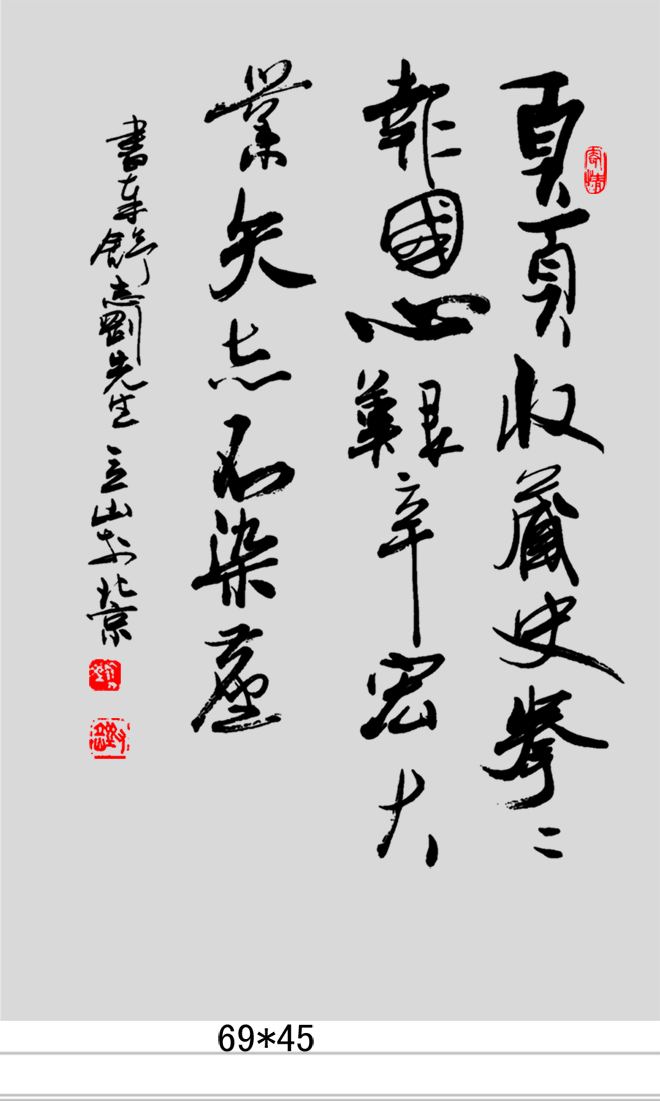 頁頁收藏史拳〻
報國心艱辛宏大
業矢志不染塵
書奉舒志剛先生 立山於北京
69*45